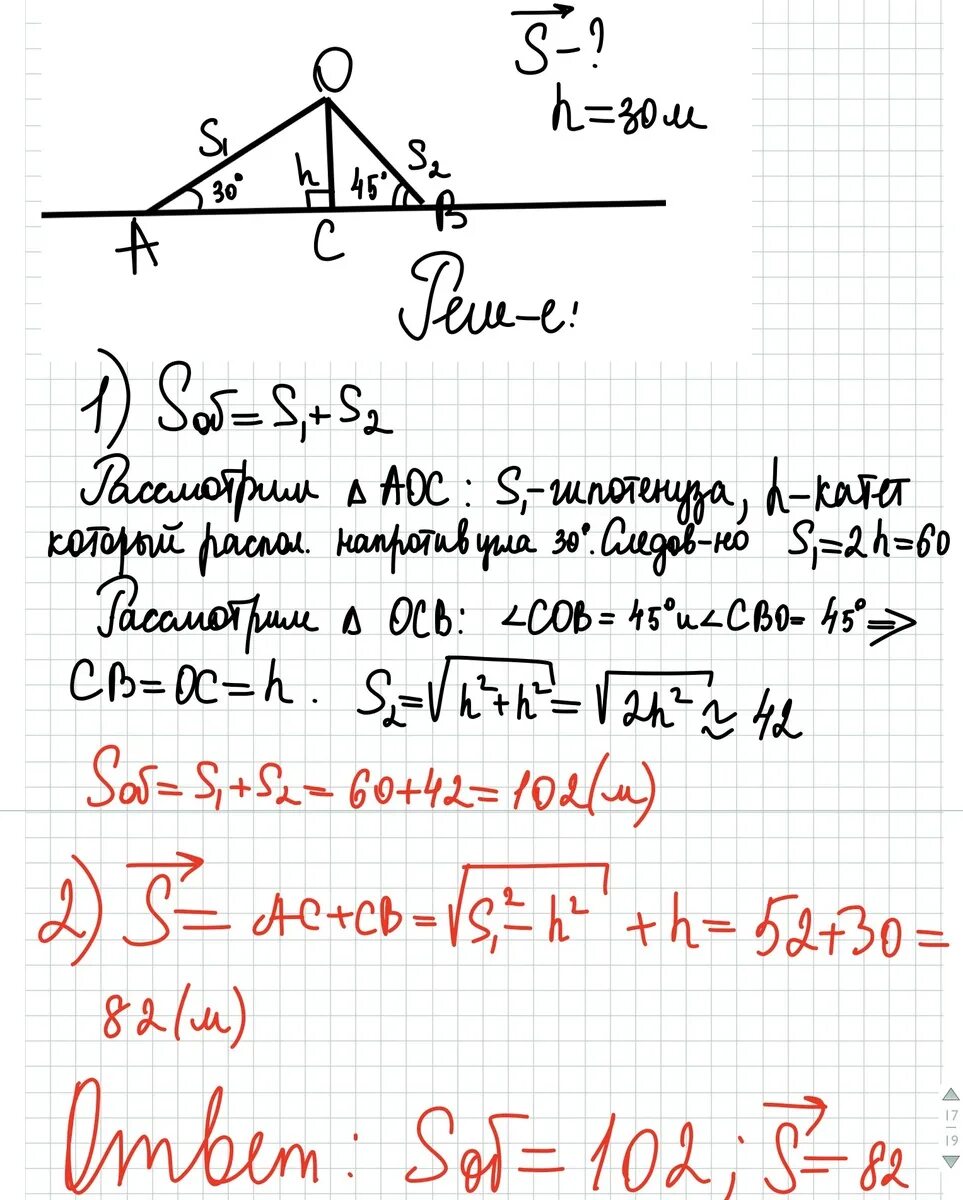 S⃗ – ?
h = 30 м
O
S₁
S₂
30°
h
45°
A
C
B
Реш-е:
1) Sоб = S₁ + S₂
Рассмотрим △ AOC : S₁ - гипотенуза, h – катет
который распол. напротив угла 30°. Следов-но S₁ = 2h = 60
Рассмотрим △ OCB: ∠COB = 45° и ∠CBO = 45° ⇒
CB = OC = h . S₂ = √(h² + h²) = √(2h²) ≈ 42
Sоб = S₁ + S₂ = 60 + 42 = 102 (м)
2) S⃗ = AC + CB = √(S₁² – h²) + h = 52 + 30 =
82 (м)
Ответ : Sоб = 102 ; S⃗ = 82
17
19